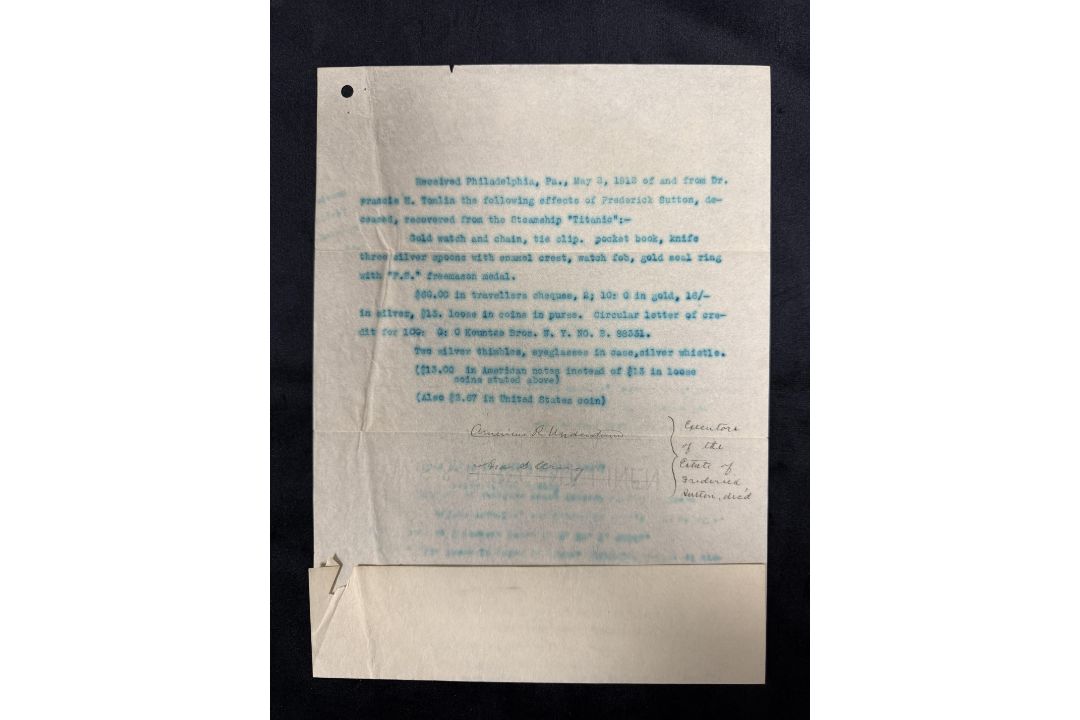 Received Philadelphia, Pa., May 3, 1912 of and from Dr.
Francis H. Tomlin the following effects of Frederick Sutton, de-
ceased, recovered from the Steamship "Titanic":-
Gold watch and chain, tie clip. pocket book, knife
three silver spoons with enamel crest, watch fob, gold seal ring
with "F.S." freemason medal.
$60.00 in travellers cheques, 2; 10: 0 in gold, 16/-
in silver, $13. loose in coins in purse. Circular letter of cre-
dit for 100: 0: 0 Kountze Bros. N. Y. NO. B. 88351.
Two silver thimbles, eyeglasses in case,silver whistle.
($13.00 in American notes instead of $13 in loose
coins stated above)
(Also $2.67 in United States coin)
Executors
of the
Estate of
Frederick
Sutton, dec'd